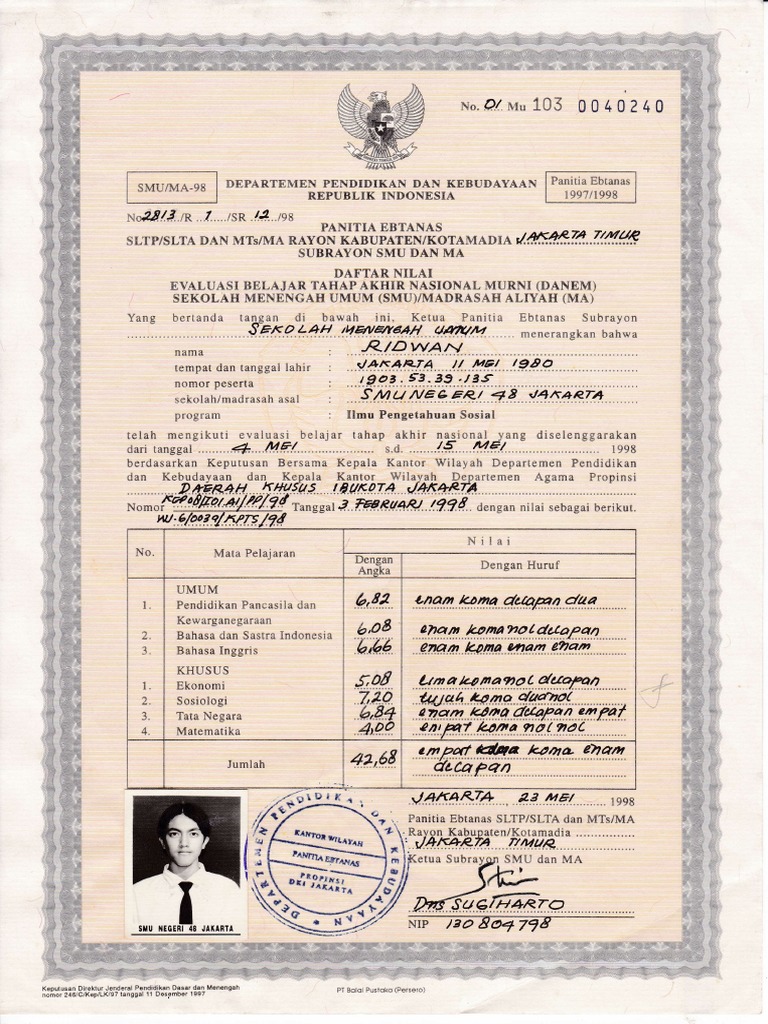 No. 01 Mu 103 0040240
SMU/MA-98
DEPARTEMEN PENDIDIKAN DAN KEBUDAYAAN
REPUBLIK INDONESIA
Panitia Ebtanas
1997/1998
No 2813 /R 1 /SR 12 /98
PANITIA EBTANAS
SLTP/SLTA DAN MTs/MA RAYON KABUPATEN/KOTAMADIA JAKARTA TIMUR
SUBRAYON SMU DAN MA
DAFTAR NILAI
EVALUASI BELAJAR TAHAP AKHIR NASIONAL MURNI (DANEM)
SEKOLAH MENENGAH UMUM (SMU)/MADRASAH ALIYAH (MA)
Yang bertanda tangan di bawah ini, Ketua Panitia Ebtanas Subrayon
SEKOLAH MENENGAH UMUM menerangkan bahwa
nama : RIDWAN
tempat dan tanggal lahir : JAKARTA 11 MEI 1980
nomor peserta : 1903.53.39.135
sekolah/madrasah asal : SMU NEGERI 48 JAKARTA
program : Ilmu Pengetahuan Sosial
telah mengikuti evaluasi belajar tahap akhir nasional yang diselenggarakan
dari tanggal 4 MEI s.d. 15 MEI 1998
berdasarkan Keputusan Bersama Kepala Kantor Wilayah Departemen Pendidikan
dan Kebudayaan dan Kepala Kantor Wilayah Departemen Agama Propinsi
DAERAH KHUSUS IBUKOTA JAKARTA
Nomor Tanggal 3 FEBRUARI 1998 dengan nilai sebagai berikut.
No. Mata Pelajaran Nilai
Dengan Angka Dengan Huruf
UMUM
1. Pendidikan Pancasila dan Kewarganegaraan 6,82 enam koma delapan dua
2. Bahasa dan Sastra Indonesia 6,08 enam koma nol delapan
3. Bahasa Inggris 6,66 enam koma enam enam
KHUSUS
1. Ekonomi 5,08 lima koma nol delapan
2. Sosiologi 7,20 tujuh koma dua nol
3. Tata Negara 6,84 enam koma delapan empat
4. Matematika 4,00 empat koma nol nol
Jumlah 42,68 empat koma enam
delapan
JAKARTA, 23 MEI 1998
Panitia Ebtanas SLTP/SLTA dan MTs/MA
Rayon Kabupaten/Kotamadia
JAKARTA TIMUR
Ketua Subrayon SMU dan MA
Drs SUGIHARTO
NIP 130804798
DEPARTEMEN PENDIDIKAN DAN KEBUDAYAAN
KANTOR WILAYAH
PANITIA EBTANAS
PROPINSI
DKI JAKARTA
SMU NEGERI 48 JAKARTA
Keputusan Direktur Jenderal Pendidikan Dasar dan Menengah
nomor 246/C/Kep/LK/97 tanggal 11 Desember 1997
PT Balai Pustaka (Persero)